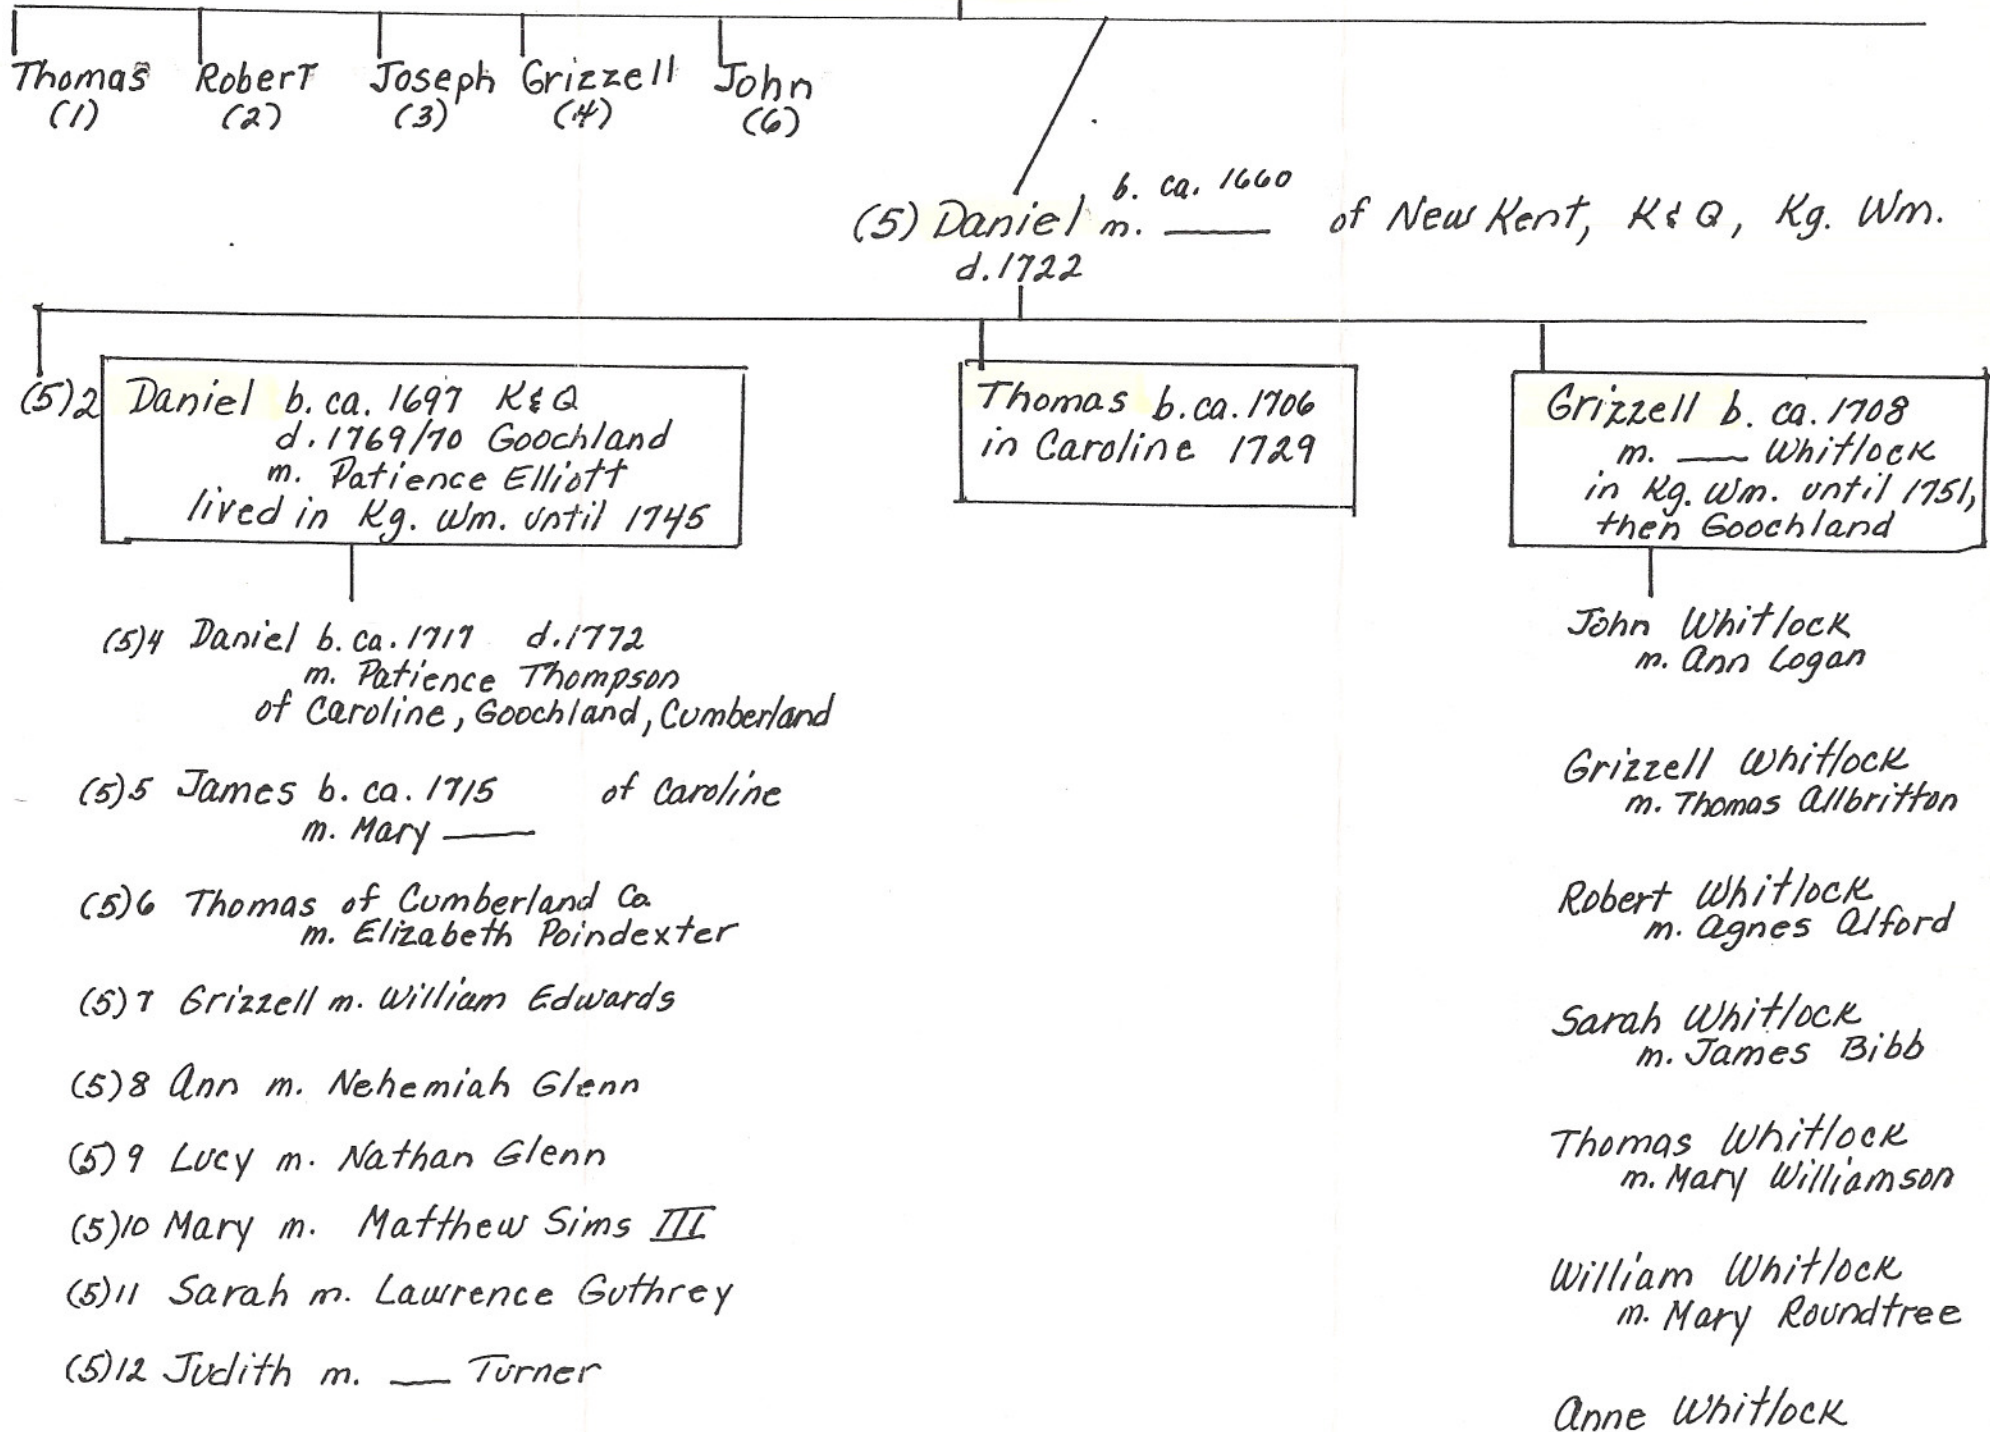 Thomas Robert Joseph Grizzell John
(1) (2) (3) (4) (6)
b. ca. 1660
(5) Daniel m. ___ of New Kent, K & Q, Kg. Wm.
d. 1722
(5)2 Daniel b. ca. 1697 K & Q
d. 1769/70 Goochland
m. Patience Elliott
lived in Kg. Wm. until 1745
Thomas b. ca. 1706
in Caroline 1729
Grizzell b. ca. 1708
m. ___ Whitlock
in Kg. Wm. until 1751,
then Goochland
(5)4 Daniel b. ca. 1717 d. 1772
m. Patience Thompson
of Caroline, Goochland, Cumberland
(5)5 James b. ca. 1715 of Caroline
m. Mary ___
(5)6 Thomas of Cumberland Co.
m. Elizabeth Poindexter
(5)7 Grizzell m. William Edwards
(5)8 Ann m. Nehemiah Glenn
(5)9 Lucy m. Nathan Glenn
(5)10 Mary m. Matthew Sims III
(5)11 Sarah m. Lawrence Guthrey
(5)12 Judith m. ___ Turner
John Whitlock
m. Ann Logan
Grizzell Whitlock
m. Thomas Allbritton
Robert Whitlock
m. Agnes Alford
Sarah Whitlock
m. James Bibb
Thomas Whitlock
m. Mary Williamson
William Whitlock
m. Mary Roundtree
Anne Whitlock